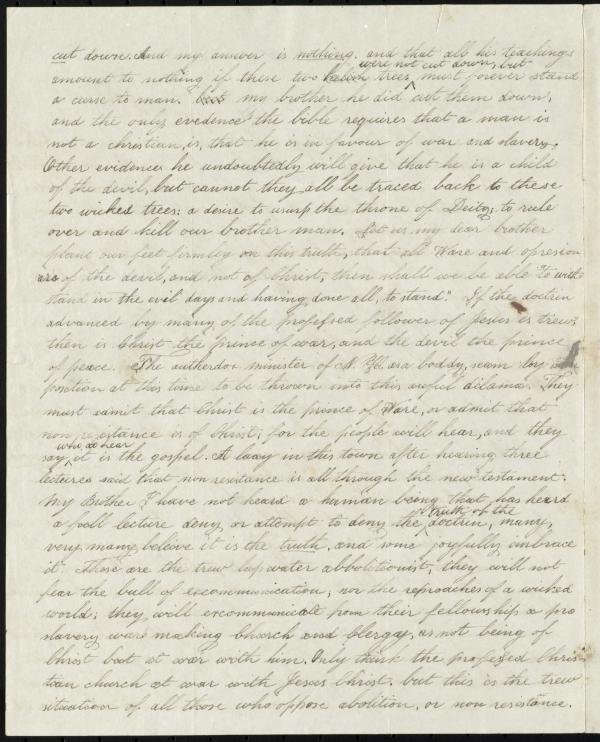 cut down. And my answer is nothing. and that all his teachings
were not cut down, but
amount to nothing if these two trees, must forever stand
a curse to man. but my brother he did cut them down,
and the only evedence the bible requires that a man is
not a christian, is, that he is in favour of war and slavery.
Other evidence he undoubtedly will give that he is a child
of the devil, but cannot they all be traced back to these
two wicked trees: a desire to usurp the throne of Deity; to rule
over and kill our brother man. Let us my dear brother
plant our feet firmly on this truth, that all Ware and opresion
are of the devil, and not of Christ, then shall we be able "to with-
stand in the evil day and having done all, to stand." If the doctrin
advanced by many of the professed follower of Jesus is trew,
then is Christ the prince of war, and the devil the prince
of peace. The minister of as a boddy, seam by
position at this time to be thrown into this awful dilama. They
must admit that Christ is the prince of Ware, or admit that
non resistance is of Christ; for the people will hear, and they
who do hear
say, it is the gospel. A laay in this town after hearing three
lectures said that non resitance is all through the new testament.
My Brother I have not heard a human being that has heard
truth of the
a full lecture deny, or attempt to deny the doctrin, many,
very many beleive it is the truth, and some joyfully imbrace
it. Those are the trew lapwater abbolitionist, they will not
fear the bull of excommunication, nor the reproaches of a wicked
world; they will excommunicate from their fellowship a pro
slavery ware making Church and Clergay, as not being of
Christ but at war with him. Only think the professed Chris-
tian church at war with Jesus Christ. but this is the trew
situation of all those who oppose abolition, or non resistance.